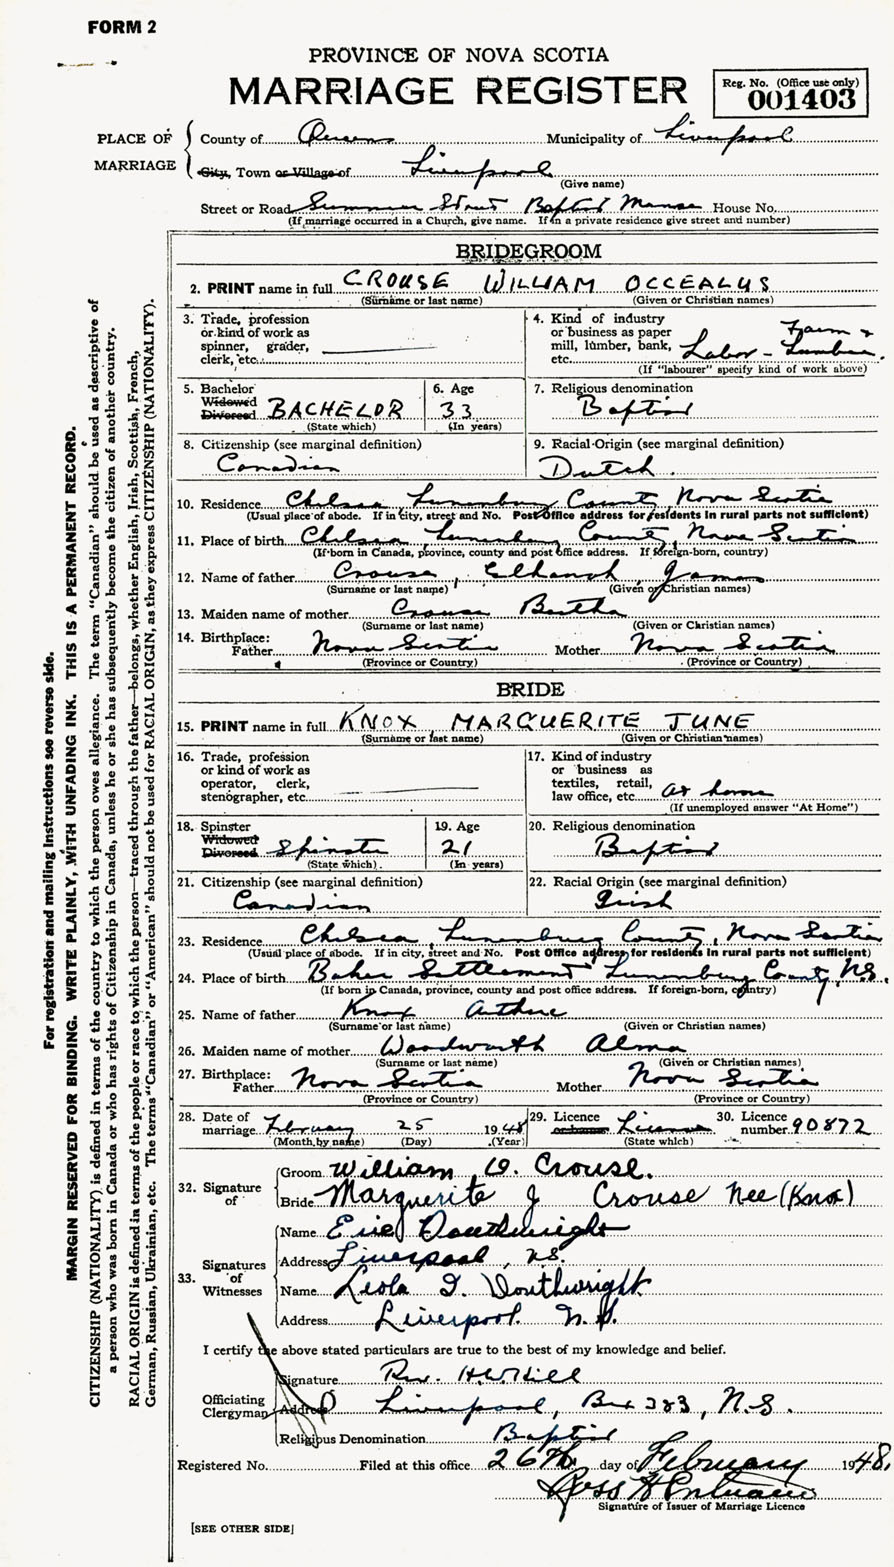 FORM 2
PROVINCE OF NOVA SCOTIA
MARRIAGE REGISTER
Reg. No. (Office use only)
001403
PLACE OF MARRIAGE
County of Queens Municipality of Liverpool
City, Town or Village of Liverpool
(Give name)
Street or Road Summer Street Baptist Manse House No.
(If marriage occurred in a Church, give name. If in a private residence give street and number)
BRIDEGROOM
2. PRINT name in full CROUSE WILLIAM OCCEALUS
(Surname or last name) (Given or Christian names)
3. Trade, profession or kind of work as spinner, grader, clerk, etc.
4. Kind of industry or business as paper mill, lumber, bank, etc. Labor - Farm & Lumber.
(If "labourer" specify kind of work above)
5. Bachelor Widowed Divorced BACHELOR
(State which)
6. Age 33
(In years)
7. Religious denomination Baptist
8. Citizenship (see marginal definition)
Canadian
9. Racial Origin (see marginal definition)
Dutch.
10. Residence Chelsea, Lunenburg County, Nova Scotia
(Usual place of abode. If in city, street and No. Post Office address for residents in rural parts not sufficient)
11. Place of birth Chelsea, Lunenburg County, Nova Scotia
(If born in Canada, province, county and post office address. If foreign-born, country)
12. Name of father Crouse, Elkanah James
(Surname or last name) (Given or Christian names)
13. Maiden name of mother Crouse Bertha
(Surname or last name) (Given or Christian names)
14. Birthplace: Father Nova Scotia Mother Nova Scotia
(Province or Country) (Province or Country)
BRIDE
15. PRINT name in full KNOX MARGUERITE JUNE
(Surname or last name) (Given or Christian names)
16. Trade, profession or kind of work as operator, clerk, stenographer, etc.
17. Kind of industry or business as textiles, retail, law office, etc. at home
(If unemployed answer "At Home")
18. Spinster Widowed Divorced Spinster
(State which)
19. Age 21
(In years)
20. Religious denomination
Baptist
21. Citizenship (see marginal definition)
Canadian
22. Racial Origin (see marginal definition)
Irish
23. Residence Chelsea, Lunenburg County, Nova Scotia
(Usual place of abode. If in city, street and No. Post Office address for residents in rural parts not sufficient)
24. Place of birth Baker Settlement Lunenburg County, N.S.
(If born in Canada, province, county and post office address. If foreign-born, country)
25. Name of father Knox Arthur
(Surname or last name) (Given or Christian names)
26. Maiden name of mother Woodworth Alma
(Surname or last name) (Given or Christian names)
27. Birthplace: Father Nova Scotia Mother Nova Scotia
(Province or Country) (Province or Country)
28. Date of marriage February 25 1948
(Month by name) (Day) (Year)
29. Licence or banns License
(State which)
30. Licence number 90872
32. Signature of
Groom William O. Crouse.
Bride Marguerite J Crouse Nee (Knox)
33. Signatures of Witnesses
Name Eric Douthwright
Address Liverpool, NS.
Name Leola I. Douthwright
Address Liverpool. N.S.
I certify the above stated particulars are true to the best of my knowledge and belief.
Officiating Clergyman
Signature Rev. H. W. Hill
Address Liverpool, Box 383, N.S.
Religious Denomination Baptist
Registered No. Filed at this office 26th day of February 1948.
Ross H
Signature of Issuer of Marriage Licence
[SEE OTHER SIDE]
For registration and mailing instructions see reverse side.
MARGIN RESERVED FOR BINDING. WRITE PLAINLY, WITH UNFADING INK. THIS IS A PERMANENT RECORD.
CITIZENSHIP (NATIONALITY) is defined in terms of the country to which the person owes allegiance. The term "Canadian" should be used as descriptive of
a person who was born in Canada or who has rights of Citizenship in Canada, unless he or she has subsequently become the citizen of another country.
RACIAL ORIGIN is defined in terms of the people or race to which the person—traced through the father—belongs, whether English, Irish, Scottish, French,
German, Russian, Ukrainian, etc. The terms "Canadian" or "American" should not be used for RACIAL ORIGIN, as they express CITIZENSHIP (NATIONALITY).